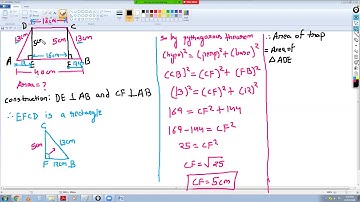 D 16cm C
13cm 5cm 5cm 13cm
A 12 E 16cm F 12 B
40cm
Area = ?
construction: DE ⊥ AB and CF ⊥ AB
∴ EFCD is a rectangle
C
5cm 13cm
F 12cm B
So by pythagoras theorem
(hypo)² = (perp)² + (base)²
(CB)² = (CF)² + (FB)²
(13)² = (CF)² + (12)²
169 = CF² + 144
169-144 = CF²
25 = CF²
CF = √25
CF = 5cm
∴ Area of trap
= Area of
△ ADE